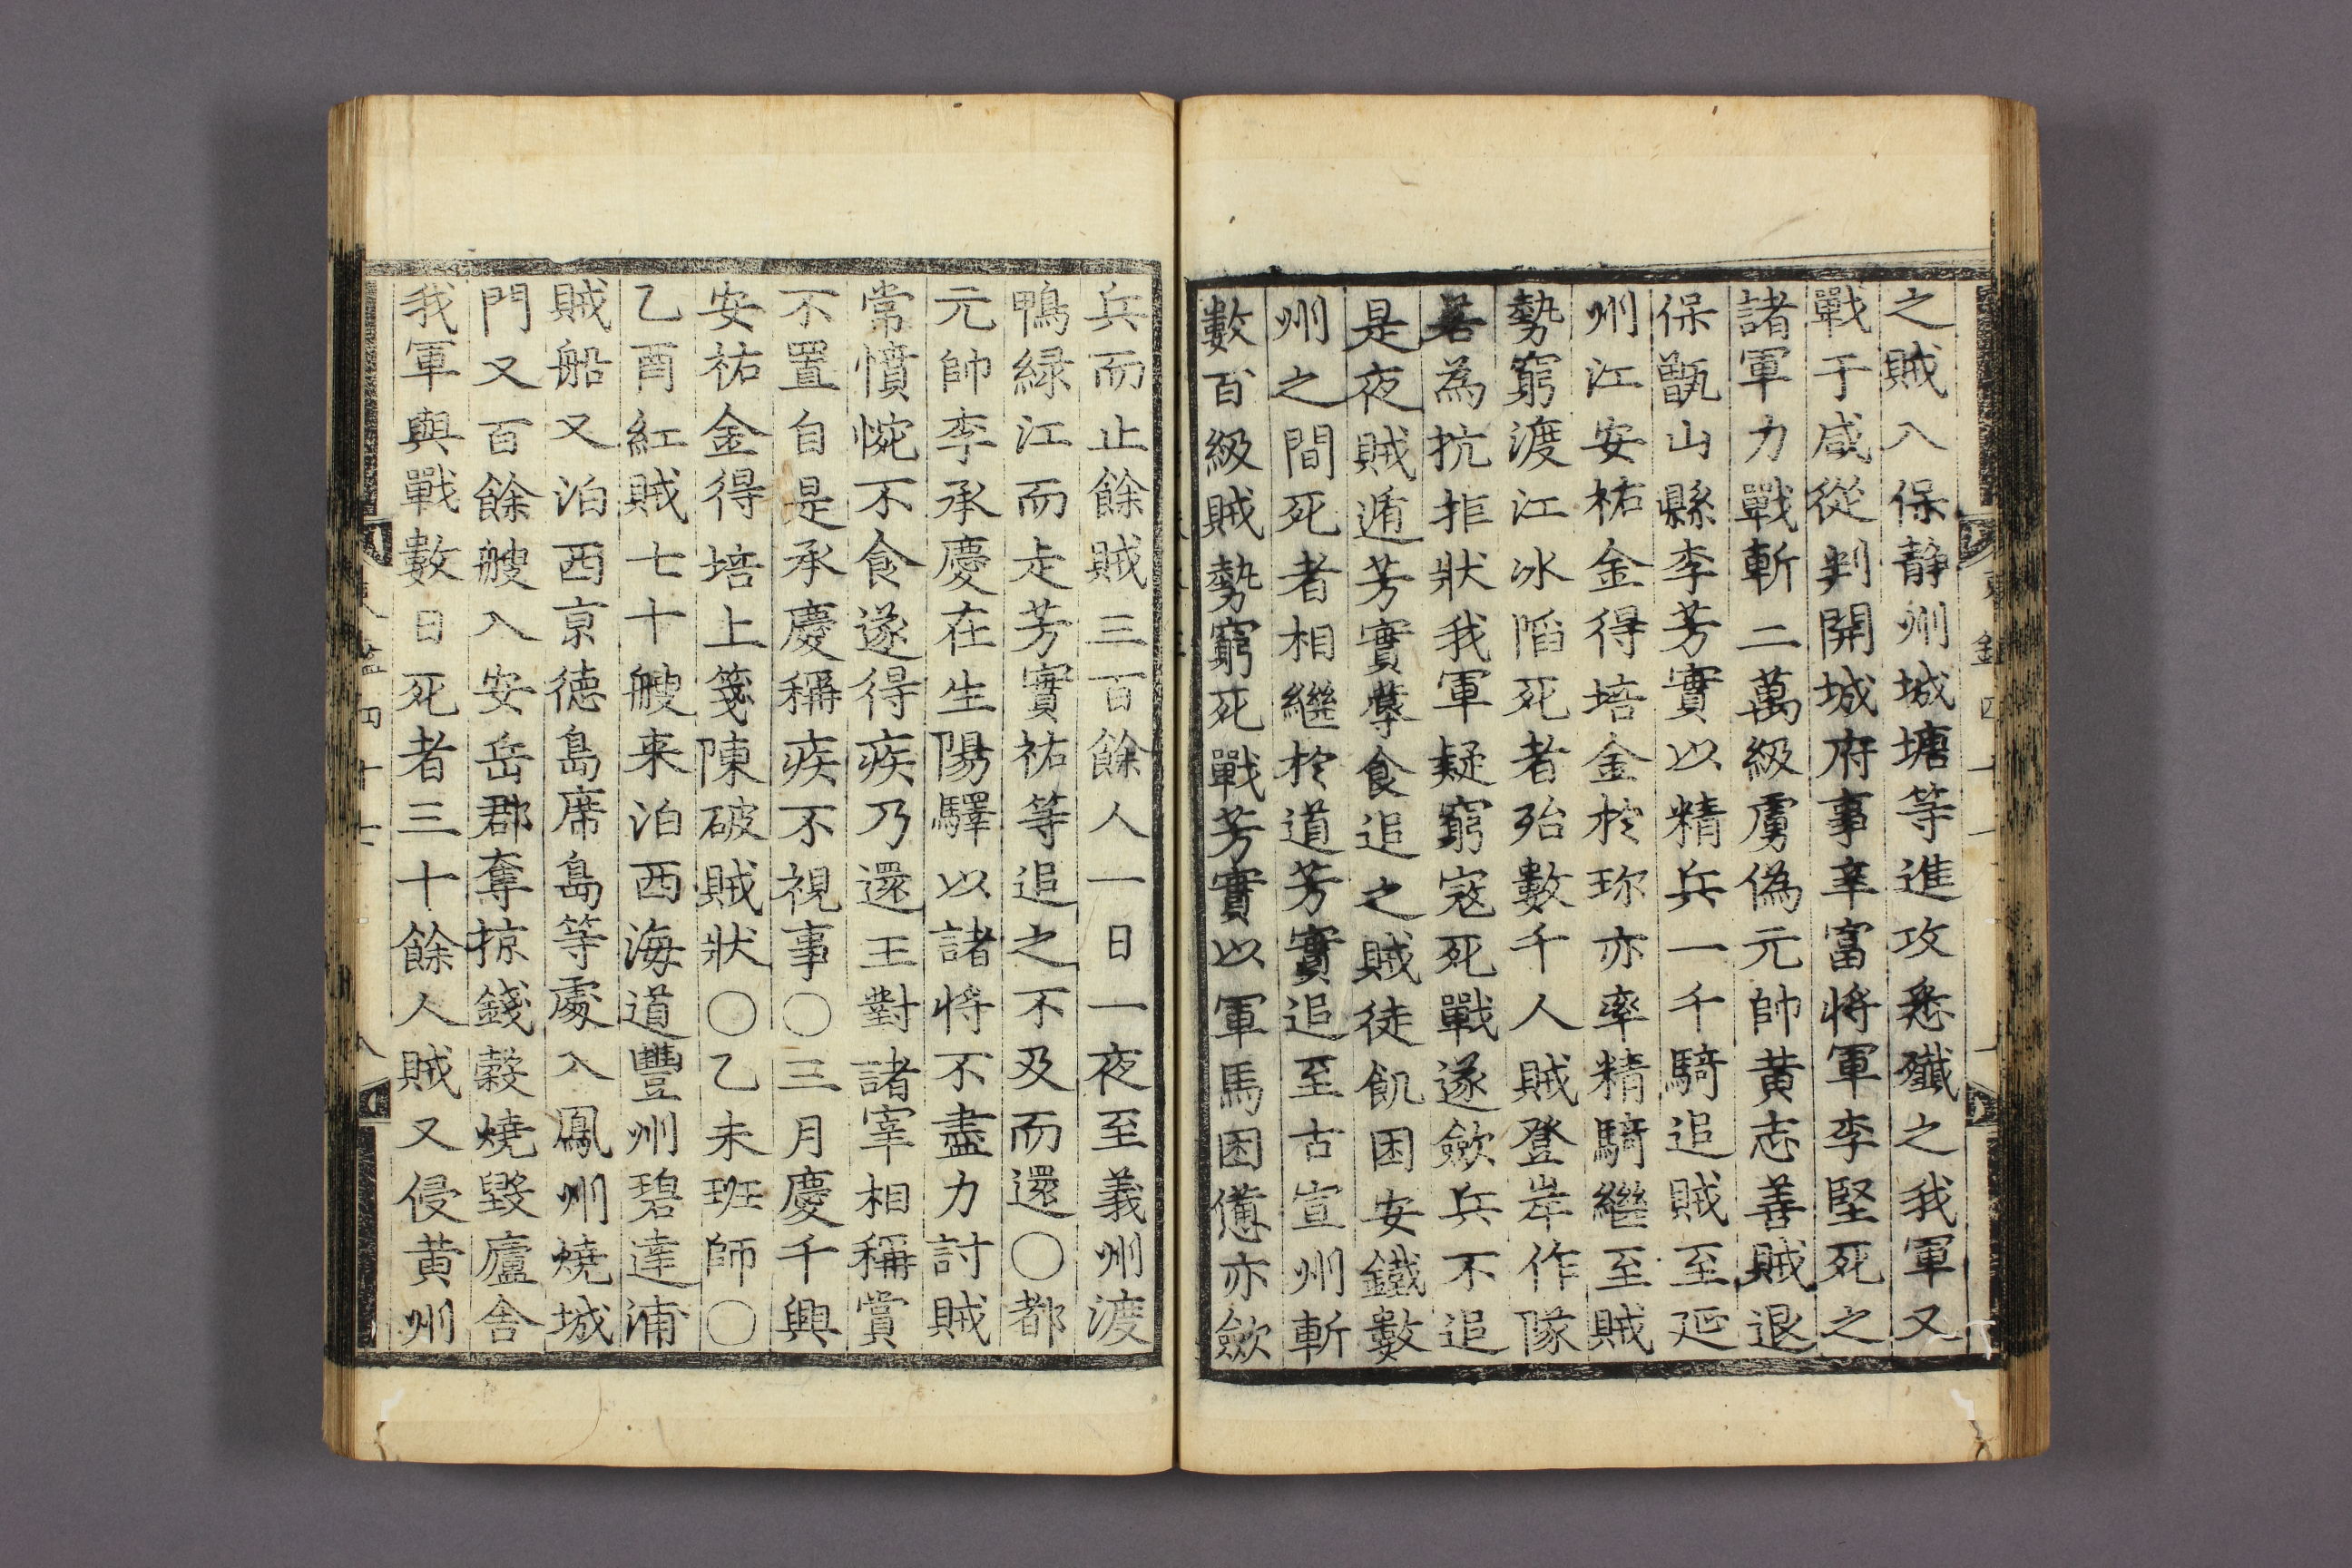 之賊入保静州城塘等進攻悉殲之我軍又
戰于咸從判開城府事辛富将軍李堅死之
諸軍力戰斬二萬級虜偽元帥黃志善賊退
保甑山縣李芳實以精兵一千騎追賊至延
州江安祐金得培金於珎亦率精騎繼至賊
勢窮渡江冰陷死者殆數千人賊登岸作隊
若為抗拒狀我軍疑窮寇死戰遂斂兵不追
是夜賊遁芳實蓐食追之賊徒飢困安鐵數
州之間死者相繼於道芳實追至古宣州斬
數百級賊勢窮死戰芳實以軍馬困憊亦斂
兵而止餘賊三百餘人一日一夜至義州渡
鴨緑江而走芳實祐等追之不及而還〇都
元帥李承慶在生陽驛以諸将不盡力討賊
常憤惋不食遂得疾乃還王對諸宰相稱賞
不置自是承慶稱疾不視事〇三月慶千興
安祐金得培上箋陳破賊狀〇乙未班師〇
乙酉紅賊七十艘来泊西海道豐州碧達浦
賊船又泊西京德島席島等處入鳳州燒城
門又百餘艘入安岳郡奪掠錢穀燒毀廬舍
我軍與戰數日死者三十餘人賊又侵黃州